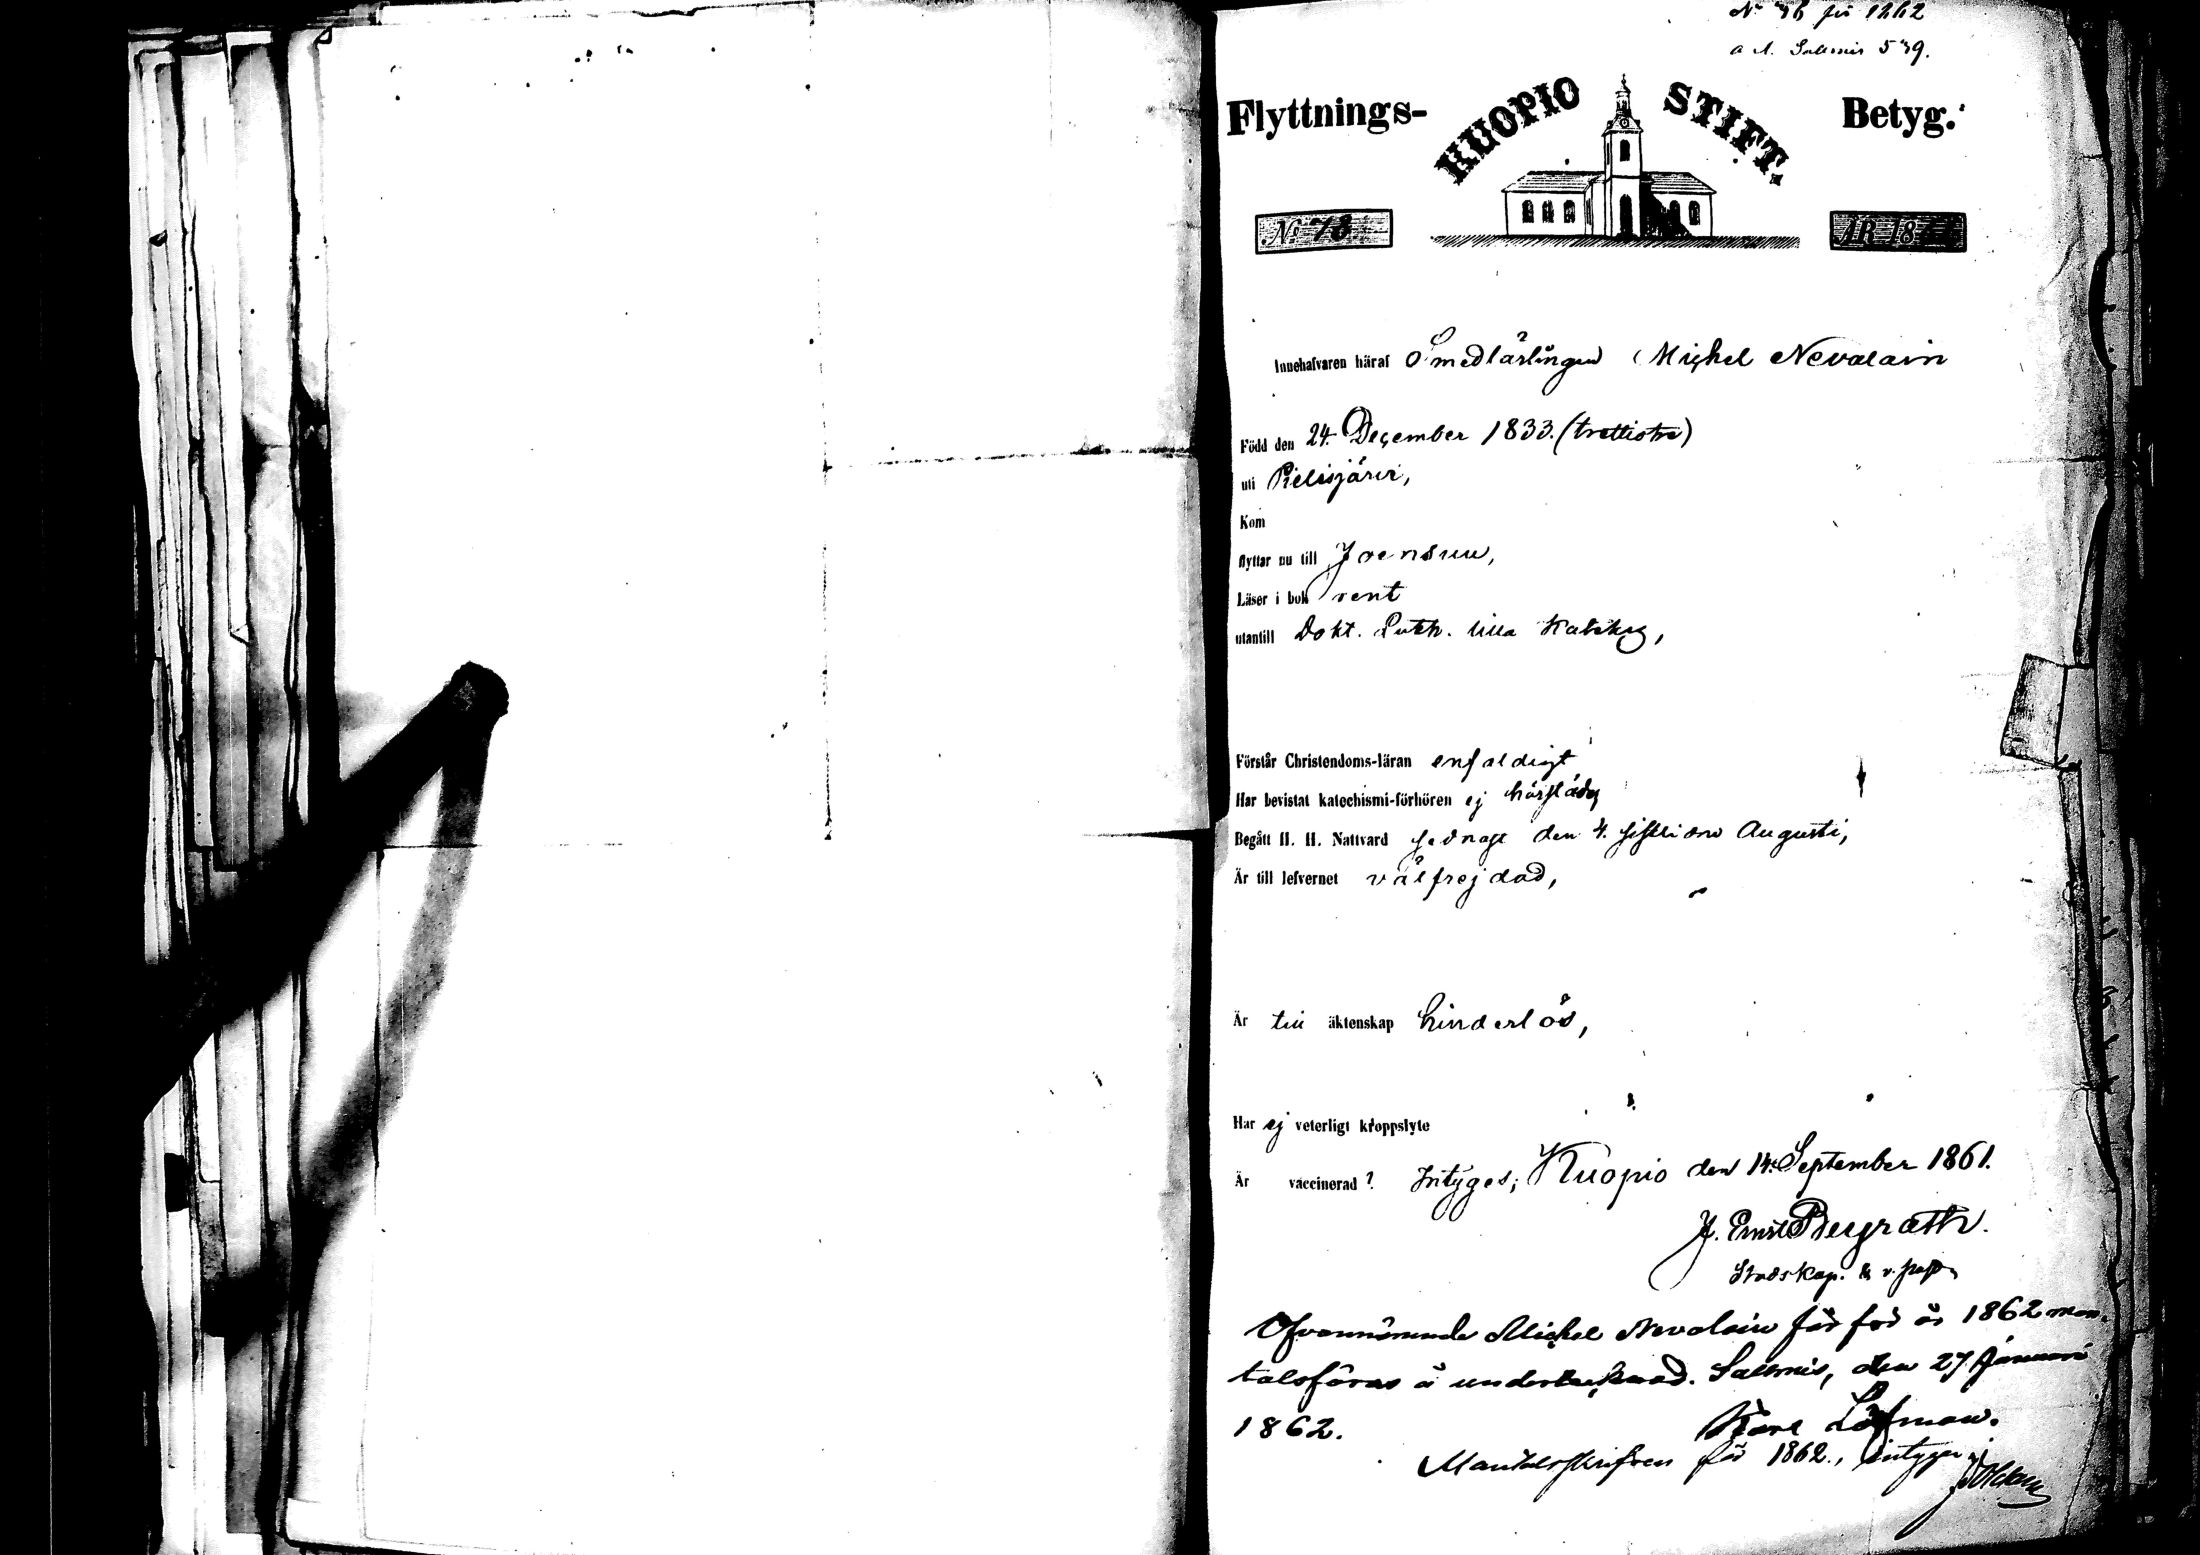 för 1862
Salmis 539.
Flyttnings- KUOPIO STIFT. Betyg.
No 78 ÅR 18
Innehafvaren häraf Smedlärlingen Michel Nevalain
Född den 24. December 1833. (trettiotre)
uti Pielisjärvi,
Kom
flyttar nu till Joensuu,
Läser i bok rent
utantill Dokt. Luth. lilla Kateky,
Förstår Christendoms-läran enfaldigt
Har bevistat katechismi-förhören ej
Begått H. H. Nattvard sednast den 4. sistlidne Augusti,
Är till lefvernet välfrejdad,
Är till äktenskap hinderlös,
Har ej veterligt kroppslyte
Är vaccinerad ? Intygas; Kuopio den 14. September 1861.
J. Ernst Bergroth.
Stadskap. & v. past.
Ofvannämnde Michel Nevalain får för år 1862 man-
talsföras å undertecknad. Salmis, den 27 Januari
1862. Karl Löfman.
Mantalsskrifven för 1862., intygar